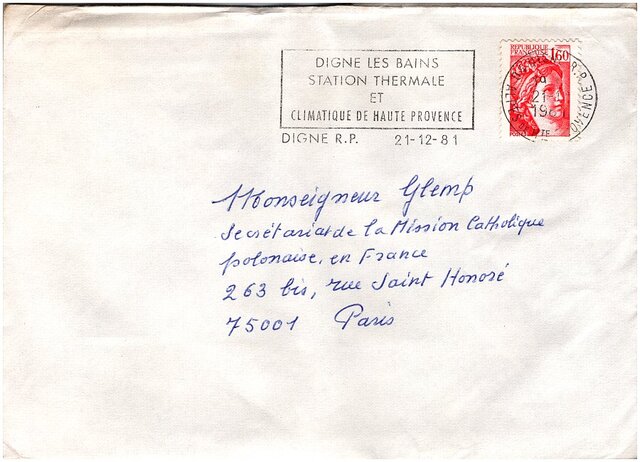 DIGNE LES BAINS
STATION THERMALE
ET
CLIMATIQUE DE HAUTE PROVENCE
DIGNE R.P. 21-12-81
REPUBLIQUE
FRANÇAISE 1,60
R.P.
21-
PROVENCE
Monseigneur Glemp
Secrétariat de la Mission Catholique
polonaise, en France
263 bis, rue Saint Honoré
75001 Paris